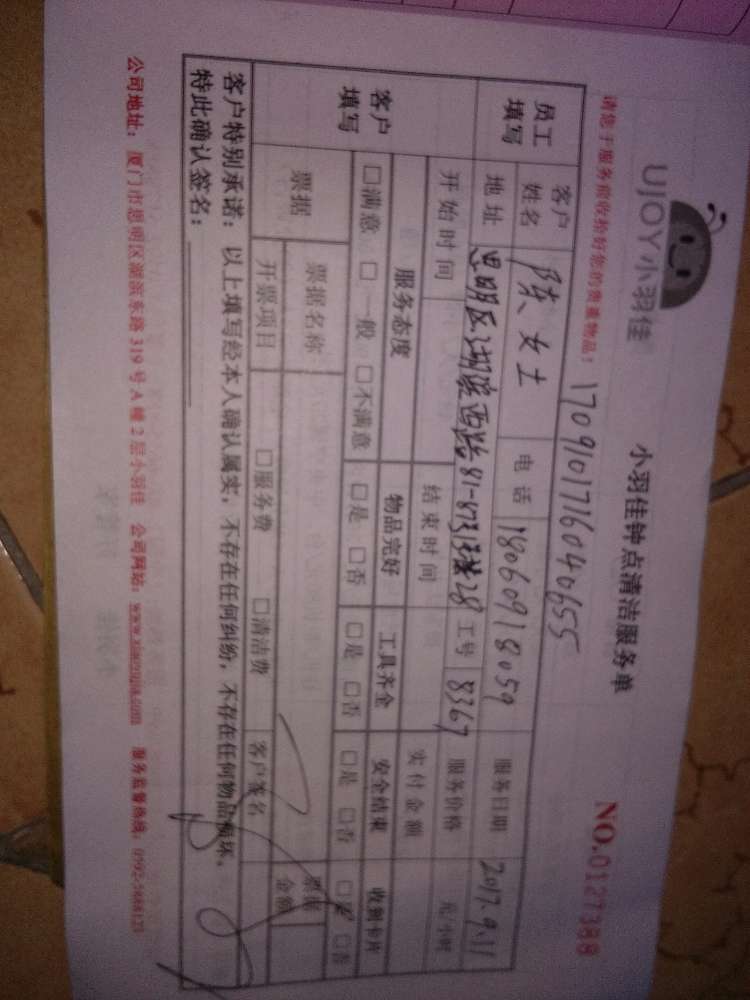 UJOY小羽佳
小羽佳钟点清洁服务单
NO.0127388
请您于服务前收拾好您的贵重物品!
1709101716040655
员工填写
客户姓名 陈女士 电话 18060918059 服务日期 2017.9.11
地址 思明区湖滨西路81-87号 工号 8367 服务价格 元/小时
开始时间 结束时间 实付金额
客户填写
服务态度 物品完好 工具齐全 安全结束 收到卡片
□满意 □一般 □不满意 □是 □否 □是 □否 □是 □否 □是 □否
票据 票据名称 票据金额
开票项目 □服务费 □清洁费 客户签名
客户特别承诺: 以上填写经本人确认属实,不存在任何纠纷,不存在任何物品损坏,
特此确认签名:
公司地址: 厦门市思明区湖滨东路319号A幢2层小羽佳 公司网站: www.xiaoyujia.com 服务监督热线: 0592-5688123